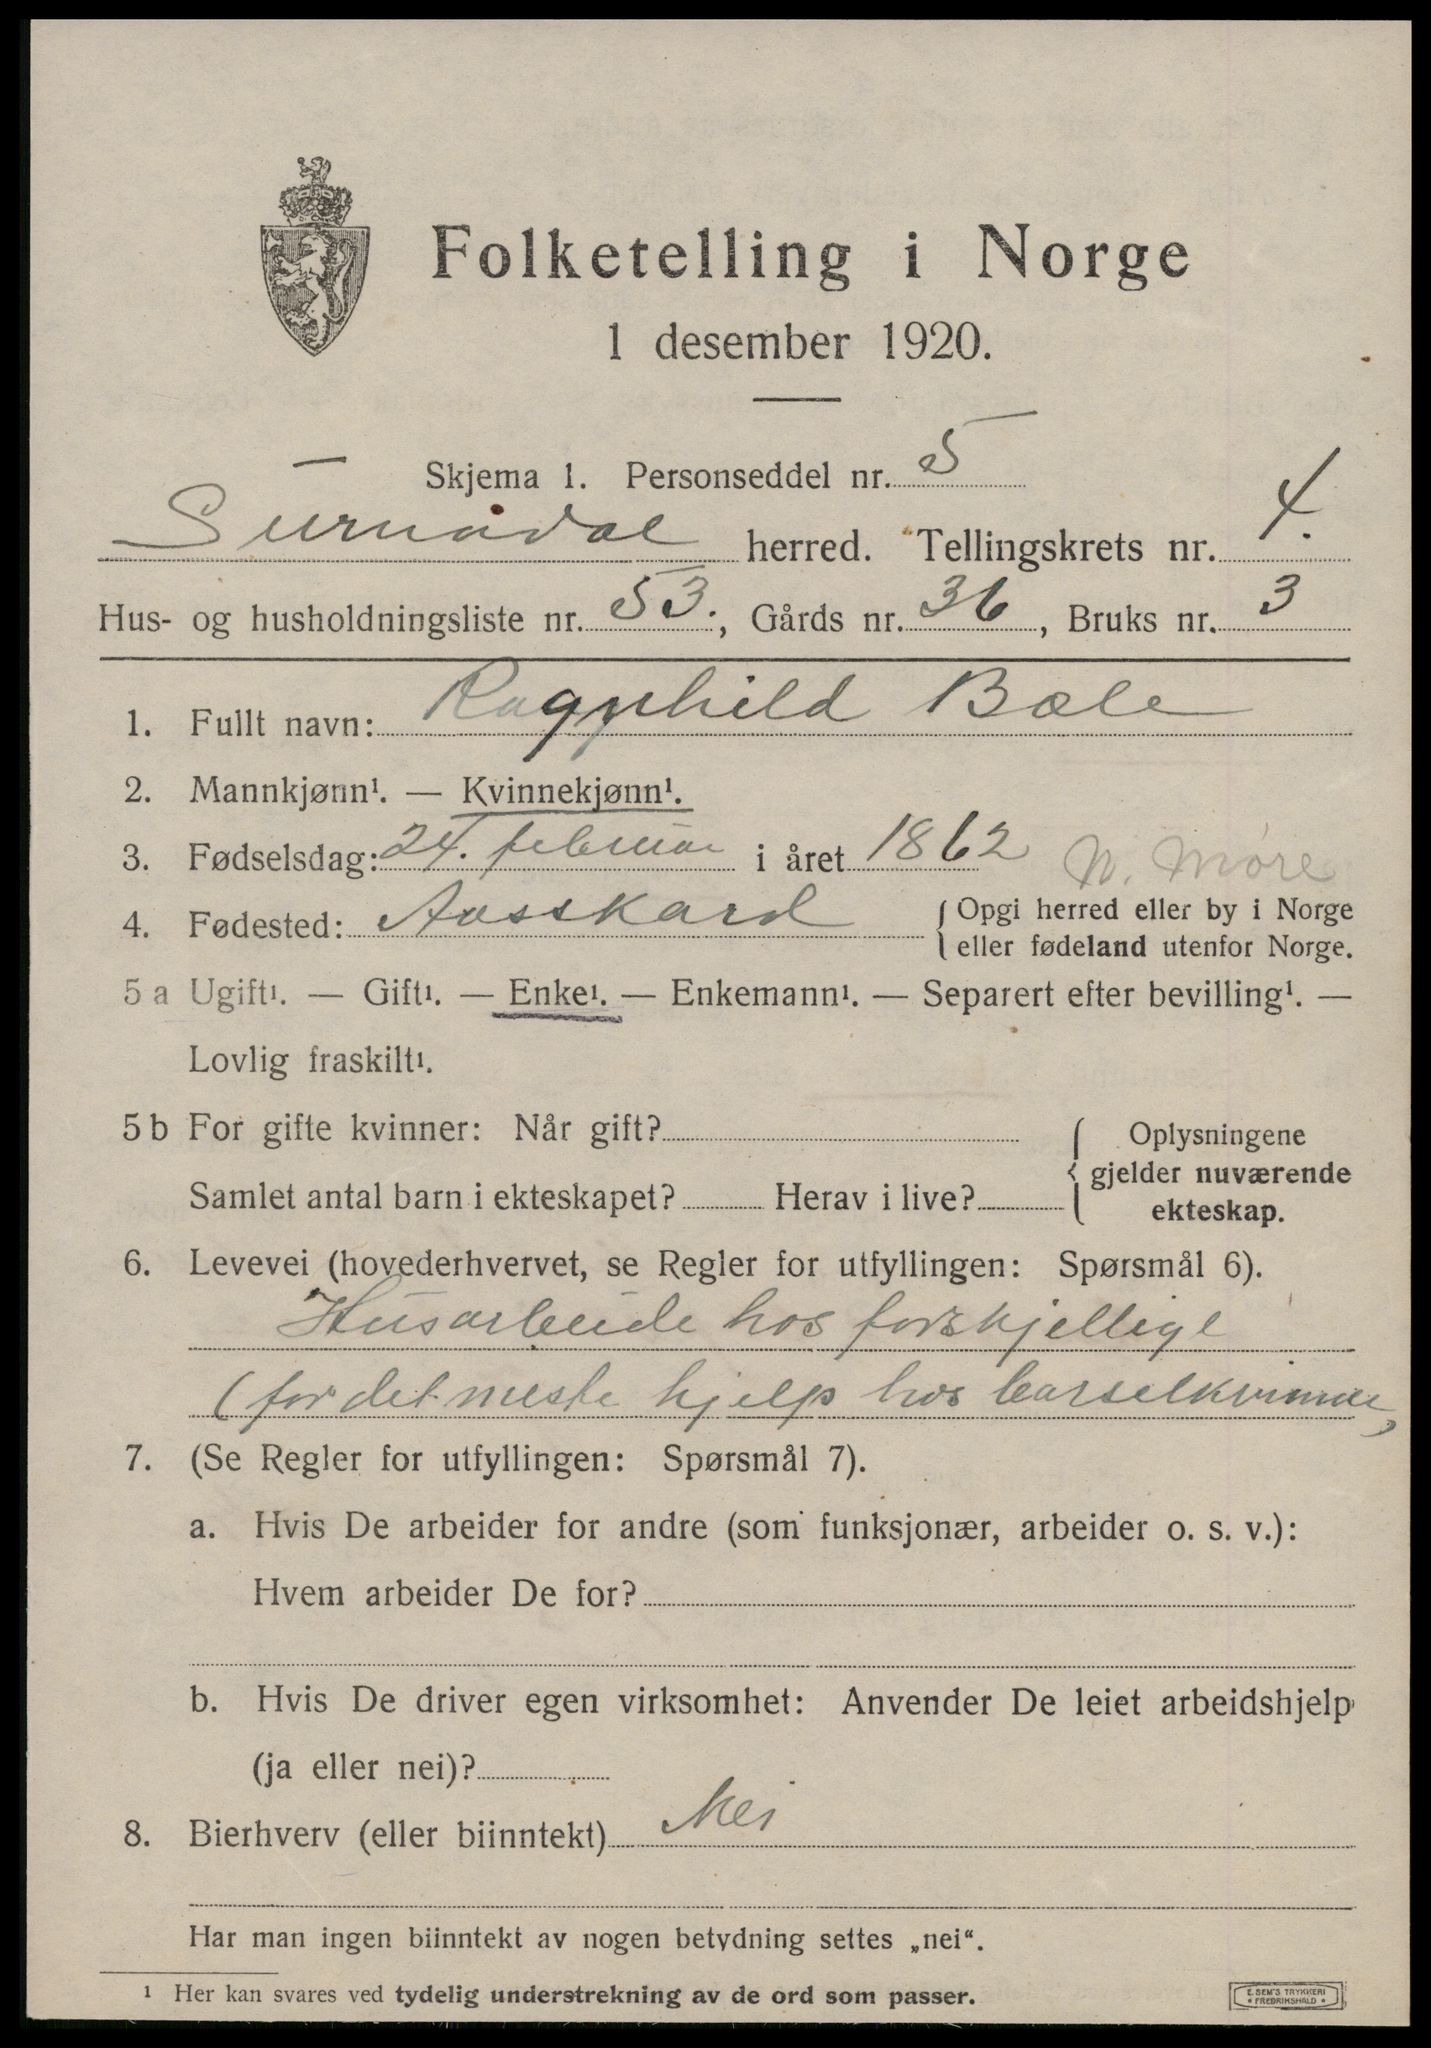 Folketelling i Norge
1 desember 1920.
Skjema 1. Personseddel nr. 5
Surnadal herred. Tellingskrets nr. 4.
Hus- og husholdningsliste nr. 53., Gårds nr. 36, Bruks nr. 3
1. Fullt navn: Ragnhild Bæle
2. Mannkjønn¹. — Kvinnekjønn¹.
3. Fødselsdag: 24. februar i året 1862 N. Møre
4. Fødested: Aasskard { Opgi herred eller by i Norge
eller fødeland utenfor Norge.
5 a Ugift¹. — Gift¹. — Enke¹. — Enkemann¹. — Separert efter bevilling¹. —
Lovlig fraskilt¹.
5 b For gifte kvinner: Når gift? { Oplysningene
gjelder nuværende
Samlet antal barn i ekteskapet? Herav i live?
ekteskap.
6. Levevei (hovederhvervet, se Regler for utfyllingen: Spørsmål 6).
Husarbeide hos forskjellige
(for det meste hjelp hos barselkvinner)
7. (Se Regler for utfyllingen: Spørsmål 7).
a. Hvis De arbeider for andre (som funksjonær, arbeider o. s. v.):
Hvem arbeider De for?
b. Hvis De driver egen virksomhet: Anvender De leiet arbeidshjelp
(ja eller nei)?
8. Bierhverv (eller biinntekt) Nei
Har man ingen biinntekt av nogen betydning settes „nei“.
¹ Her kan svares ved tydelig understrekning av de ord som passer.
E. SEM'S TRYKKERI
FREDRIKSHALD